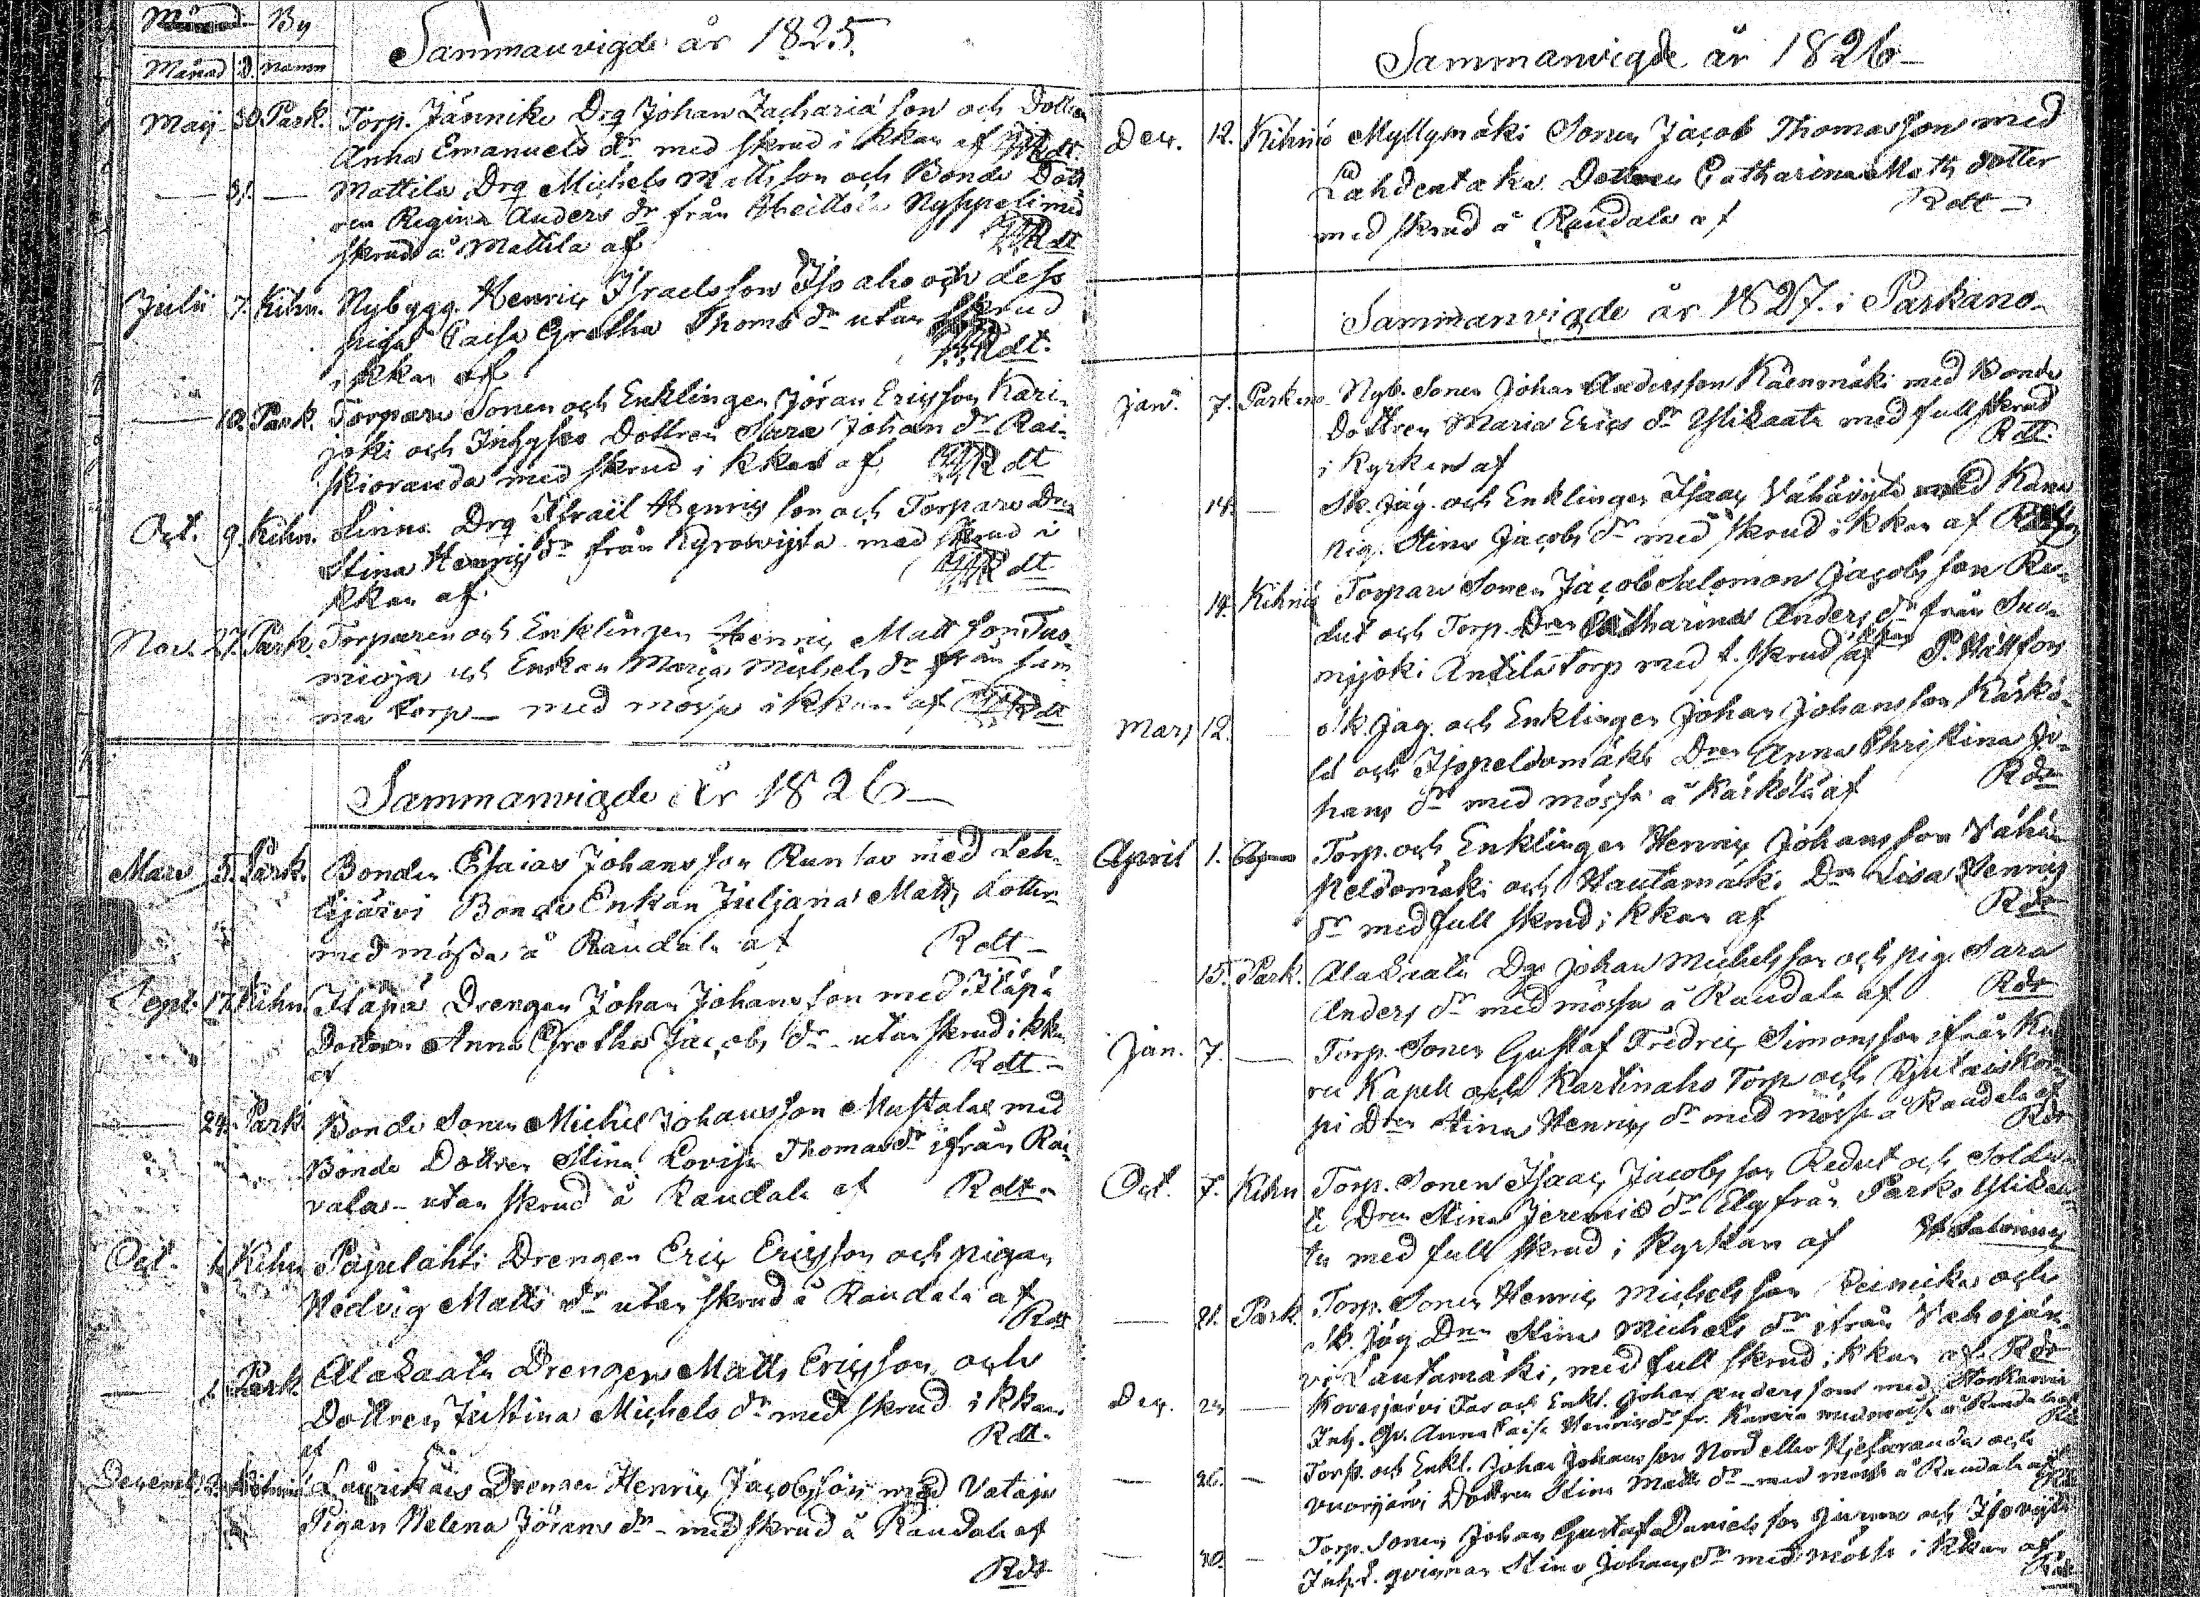 Månad By
Månad D. Namn
Sammanvigde år 1825
Maij 30. Park. Torp. Jännike Drg Johan Zachariæ son och Dottren
Anna Emanuels dr med skrud i kkan af Rdt
— 31. — Mattila Drg Michels Matts son och Bonde Dott
ren Regina Anders dr från Nyppeli med
skrud å Mattila af Rdt
Julii 7. Kihn. Nybygg. Henric Israels son Iso aho och dess
piga Caisa Gretha Thoms dr utan skrud
i kkan af Rdt.
— 10. Park. Torpare Sonen och Enklingen Jöran Ericsson Kari-
joki och Inhyses Dottren Sara Johan dr Rai-
skioranda med skrud i kkan af Rdt
Oct. 9. Kihn. Linna Drg Israil Henrics son och Torpare Dr
Stina Henrics dr från med skrud i
kkan af Rdt
Nov. 27. Park. Torparen och Enklingen Henric Matt son Tuo-
mioja och Enkan Maria Michels dr från sam-
ma torp — med mössa i kkan af Rdt
Sammanvigde År 1826 —
Mars 5. Park. Bonden Esaias Johansson Runsas med Leh-
tijärvi Bonde Enkan Juljana Matts dotter
med mössa å Raudala af Rdt —
Sept. 17. Kihn. Itäpä Drengen Johan Johansson med Itäpä
Dottren Anna Gretha Jacobs dr — utan skrud i kkan
af Rdt —
— 24. Park. Bonde Sonen Michel Johansson Mustalax med
Bonde Dottren Stina Lovisa Thomas dr ifrån Rai-
vala — utan skrud å Raudala af Rdt —
Oct. 1. Kihn Pajulahti Drengen Eric Ericsson och pigan
Hedvig Matts dr utan skrud å Raudala af
Rdt
— 1. Park. Alakaata Drengen Matts Ericsson och
Dottren Justina Michels dr med skrud i kkan
af Rdt.
Decemb. 3. Kihniö Laurikais Drengen Henric Jacobsson med Vataja
Pigan Helena Jörans dr — med skrud å Raudala af
Rdt
Sammanvigde år 1826 —
Dec. 12. Kihniö Myllymäki Sonen Jacob Thomasson med
Lahdentaka Dottren Catharina Mats dotter
med skrud å Raudala af Rdt —
Sammanvigde år 1827. i Parkano —
Jan. 7. Parkano Nyb. Sonen Johan Andersson Käenmäki med Bonde
Dottren Maria Erics dr Ylikaata med full skrud
i Kyrkan af Rdt.
14. — Sk. Jäg. och Enklingen Isaac Vähäöysti med
Pig. Stina Jacobs dr med skrud i kkan af
14. Kihniö Torpare Sonen Jacob Salomon Jacobs son Re-
dut och Torp. Dren Catharina Anders dr från Suo-
mijoki Anttila torp med f. skrud i kkan af P. Hällfors
Mars 12. Sk. Jäg. och Enklingen Johan Johansson Kärkö-
lä och Isopeldomäki Dren Anna Christina Jo-
hans dr med mössa å Kärkölä af Rdt
April 1. Torp. och Enklingen Henric Johansson Vähä-
Peldomäki och Hautamäki Dren Lisa Henrics
dr med full skrud i kkan af Rdt
15. Park. Alakaata Dr. Johan Michelsson och pig. Sara
Anders dr med mössa å Raudala af Rdt
Jan. 7. — Torp. Sonen Gustaf Fredric Simonsson ifrån Ku
ru Kapell och Kartinaho Torp och Kor-
pi Dren Stina Henrics dr med mössa å Raudala af
Rdt
Oct. 7. Kihn Torp. Sonen Isaac Jacobs son Redut och Solda-
te Dren Stina Jeremiæ dr Elg från Parko Ylikaa-
ta med full skrud i kyrkan af
— 21. Park. Torp. Sonen Henric Michels son och
Sk. Jäg. Dren Stina Michels dr ifrån Vahojär-
vi Lautamäki, med full skrud i kkan af Rdt
Dec. 23 — Kovesjärvi Tor och Enkl. Johan Anders son med
Inh. Qv. Anna Caisa Henrics dr fr. med mössa å Raudala af
— 26. — Torp. och Enkl. Johan Johansson Nord eller och
Vuorijärvi Dottren Stina Matts dr — med mössa å Raudala af
— 30. — Torp. Sonen Johan Gustaf Daniels son och
Inh. qvinnan Stina Johans dr med mössa i kkan af
Rdt